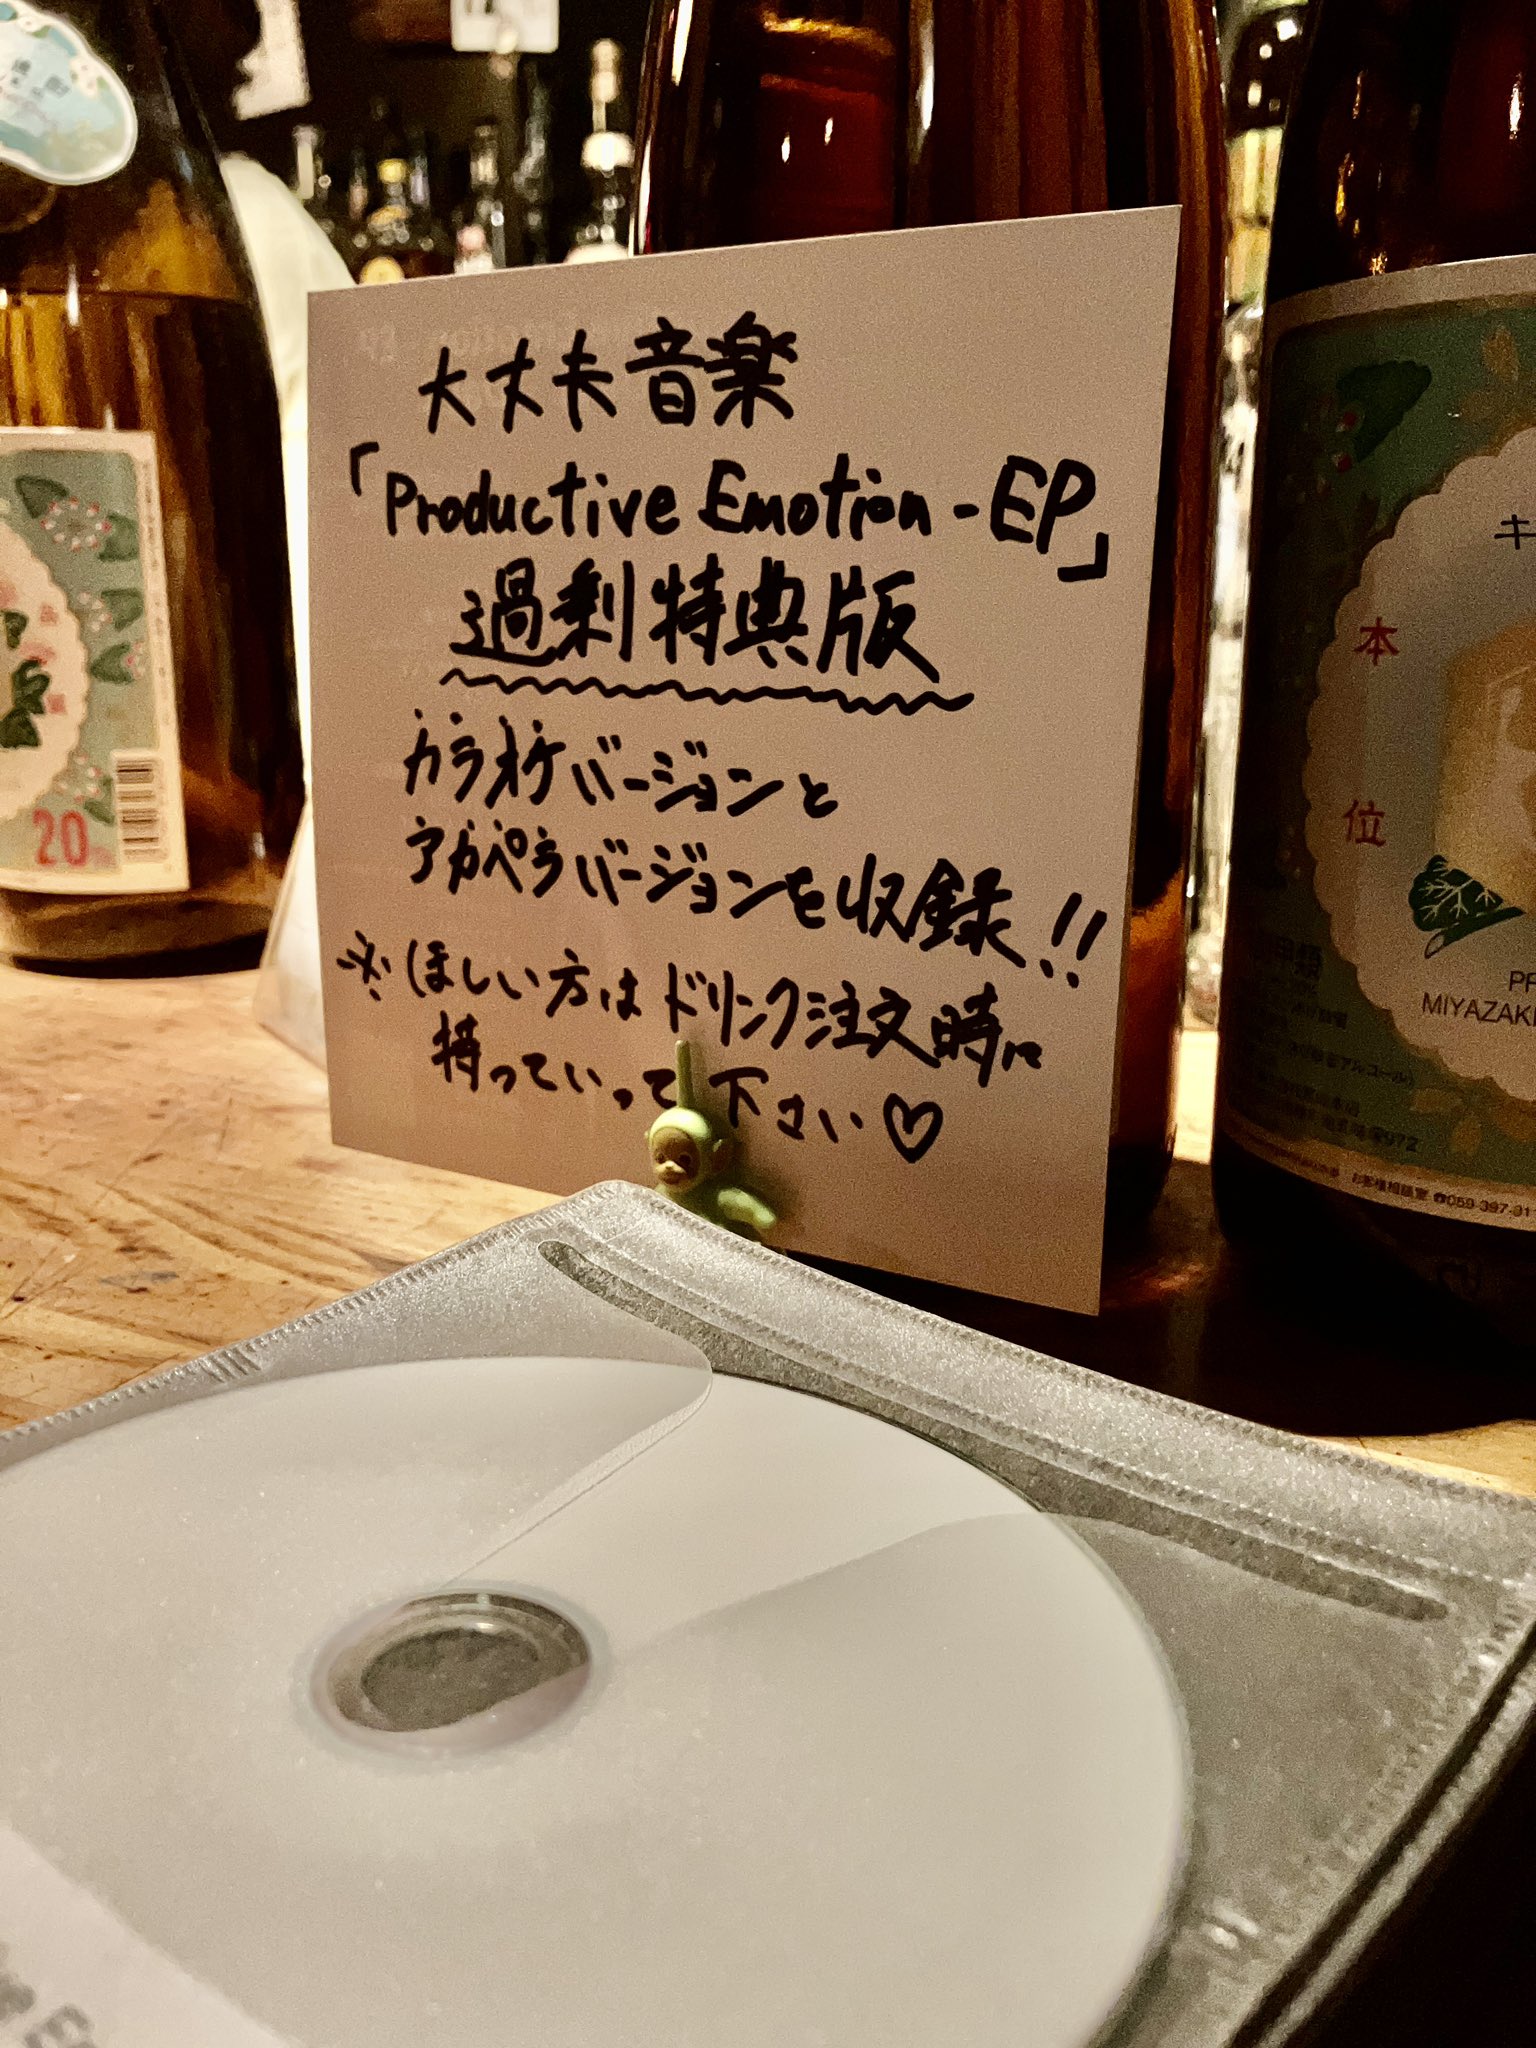 大丈夫音楽
「Productive Emotion-EP」
過剰特典版
カラオケバージョンと
アカペラバージョンを収録!!
※ほしい方はドリンク注文時に
持っていって下さい♡
20
キ
本
位
MIYAZAK